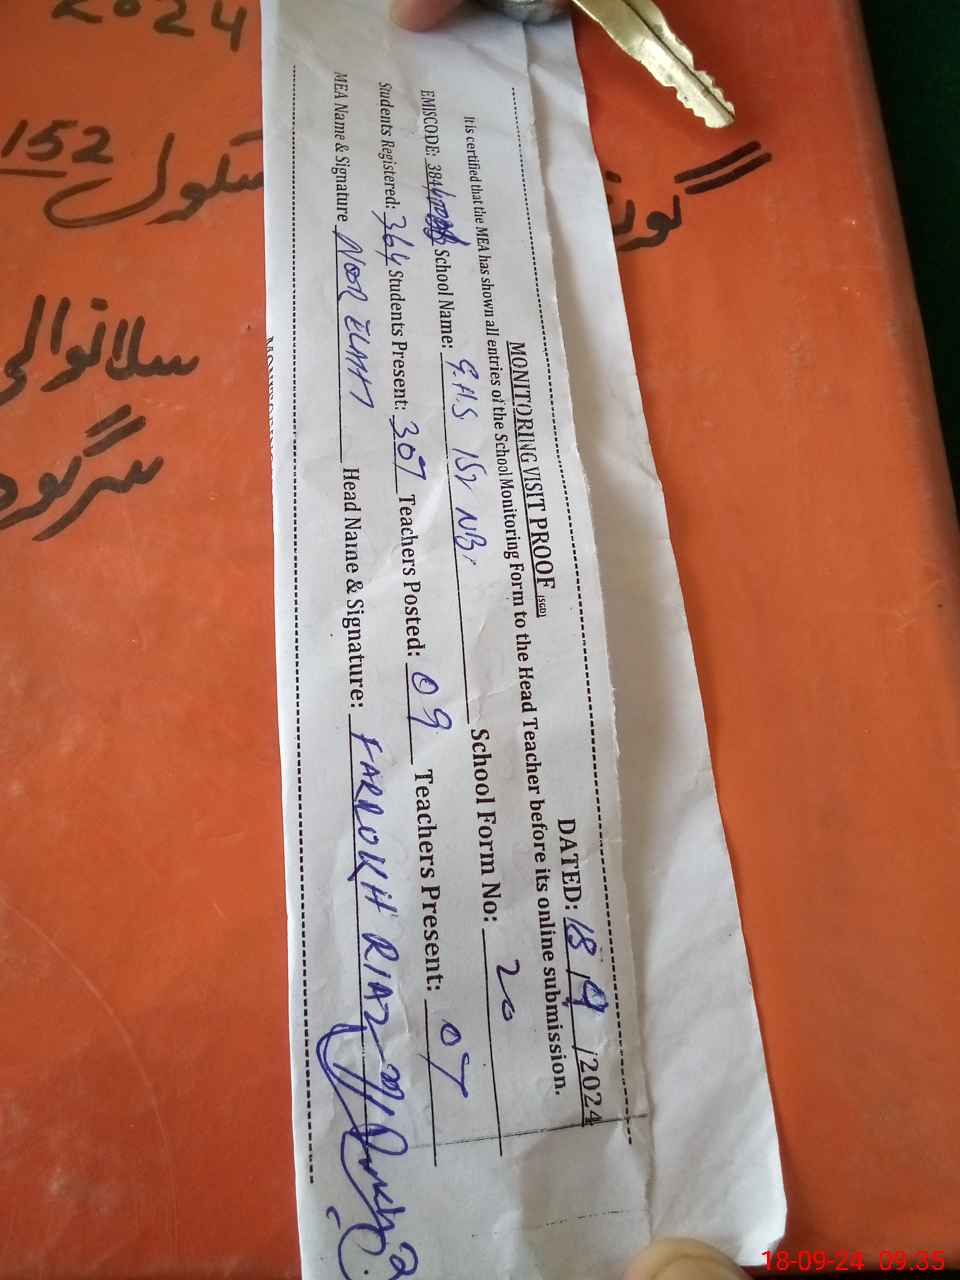 2024
گورنمنٹ
سکول 152
سلانوالی
سرگودھا
MONITORING VISIT PROOF (SGD)
DATED: 18/9/2024
It is certified that the MEA has shown all entries of the School Monitoring Form to the Head Teacher before its online submission.
EMISCODE: 384 School Name: G.H.S 152 NB. School Form No: 20
Students Registered: 364 Students Present: 307 Teachers Posted: 09 Teachers Present: 07
MEA Name & Signature NOOR ELAHI Head Name & Signature: FARROKH RIAZ
18-09-24 09:35